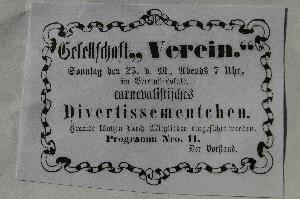 Gesellschaft „Verein.“
Sonntag den 25. d. M., Abends 7 Uhr,
im Vereins-Lokale,
carnevalistisches
Divertissementchen.
Fremde können durch Mitglieder eingeführt werden.
Programm Nro. 11.
Der Vorstand.